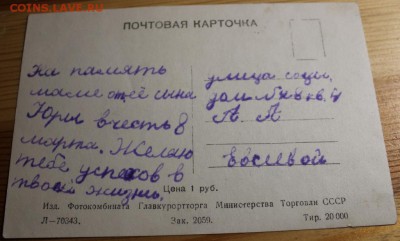 COINS.LAVE.RU
ПОЧТОВАЯ КАРТОЧКА
На память
маме от её сына
Юры в честь 8
марта. Желаю
тебе успехов в
твоей жизнь.
улица
дом
Л. Л
Цена 1 руб.
Изд. Фотокомбината Главкурортторга Министерства Торговли СССР
Л—70343. Зак. 2059. Тир. 20 000